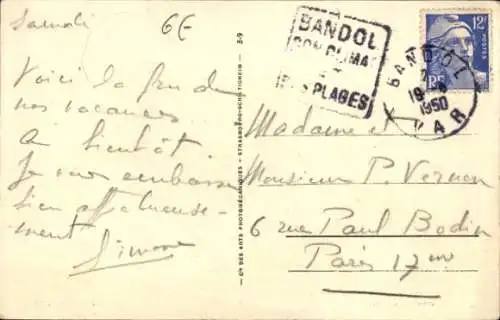 Samedi
6E
Voici la fin de
nos vacances
A bientôt
Je vous embrasse
bien affectueuse-
ment
Simone
Cie DES ARTS PHOTOMÉCANIQUES - STRASBOURG-SCHILTIGHEIM - 3-9
BANDOL
SON CLIMAT
PLAGES
12F
POSTES
RF
BANDOL
19 - 8
1950
VAR
Madame et
Monsieur P. Vernon
6 rue Paul Bodin
Paris 17me